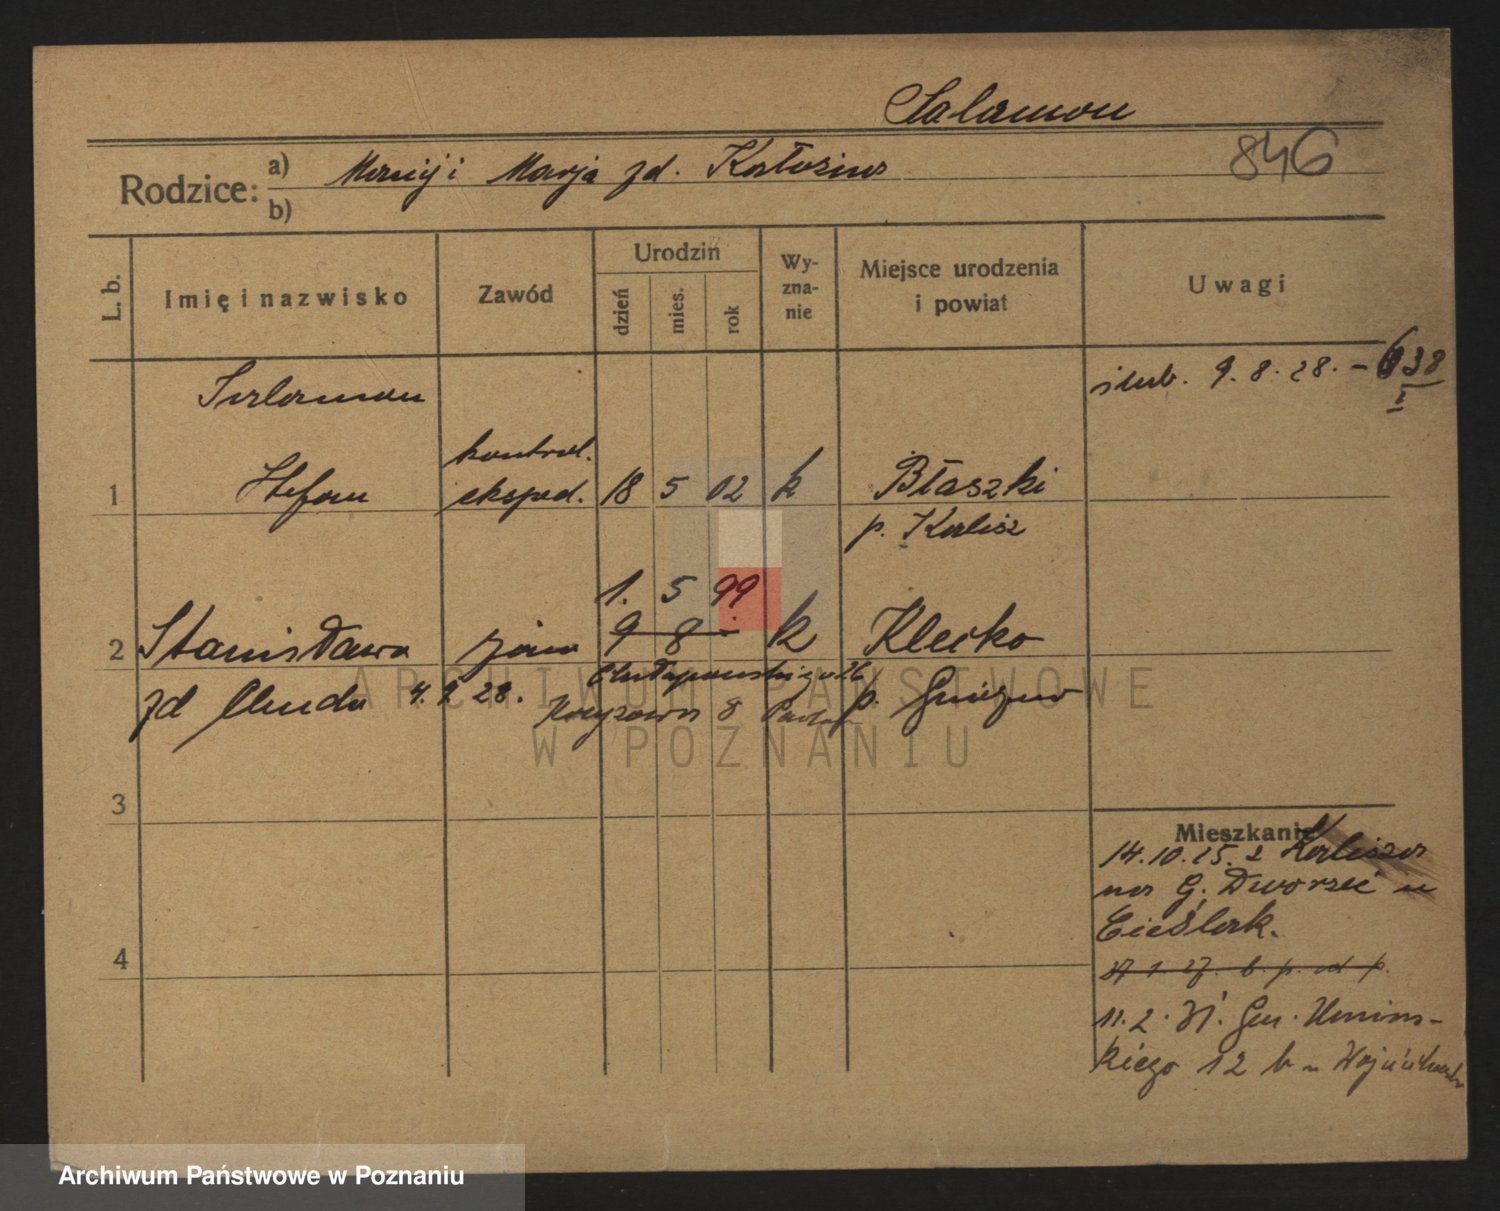 Salamon
846
Rodzice: a) Maciej i Marja zd.
b)
L. b. Imię i nazwisko Zawód Urodzin dzień mies. rok Wyznanie Miejsce urodzenia i powiat Uwagi
ślub. 9. 8. 28. –
Salamon
kontrol.
1 Stefan eksped. 18 5 02 k Błaszki
p. Kalisz
1. 5 99
2 Stanisława żona 9 8 k Klecko
Chłapowskiego 26
zd 4. 9. 28. 8 p. Gniezno
3
4
Mieszkanie
14.10.25. z Kalisza
na G. Dworzec u
Cieślak.
27. 1. 27. b. p. od p.
11. 2. Gen. Umins-
kiego 12 b u
ARCHIWUM PAŃSTWOWE
W POZNANIU
Archiwum Państwowe w Poznaniu